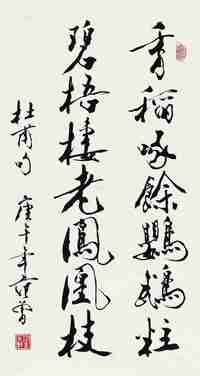 香稻啄餘鸚鵡粒
碧梧棲老鳳凰枝
杜甫句 庚午年 范曾